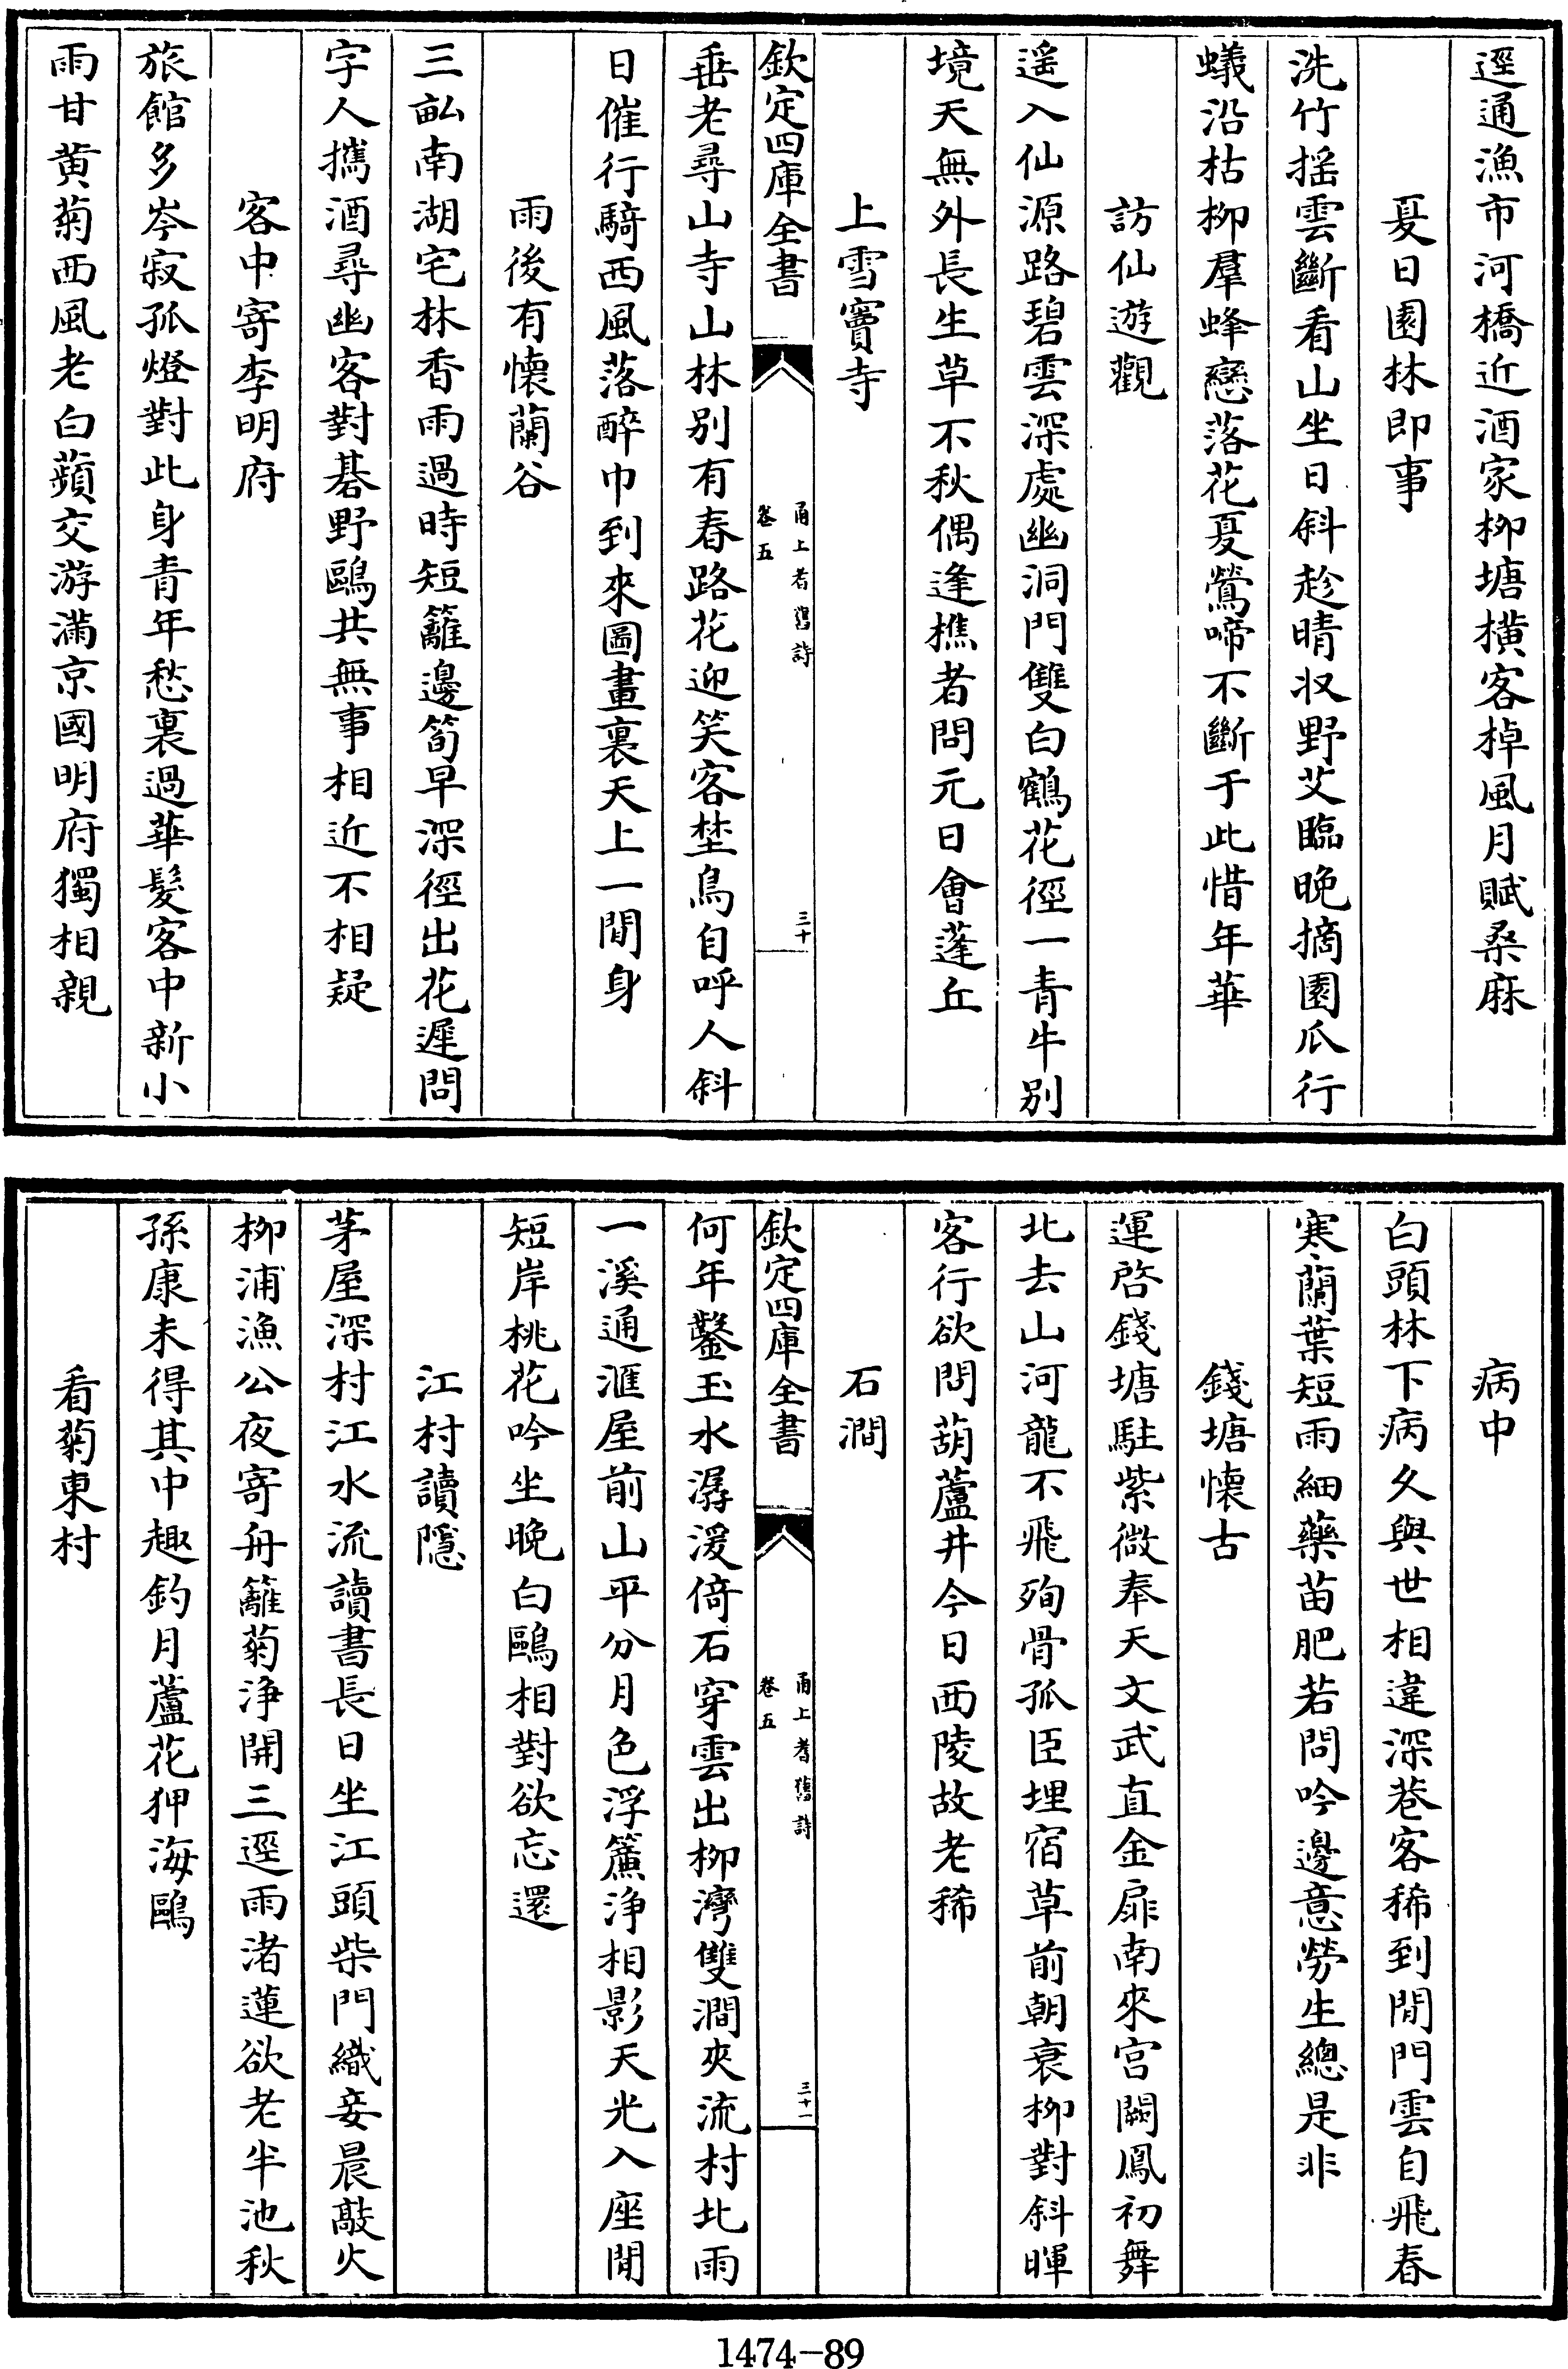 逕通漁市河橋近酒家柳塘横客棹風月賦桑麻
夏日園林即事
洗竹揺雲斷看山坐日斜趁晴収野艾臨晩摘園瓜行
蟻沿枯柳羣蜂戀落花夏鶯啼不斷于此惜年華
訪仙遊觀
遥入仙源路碧雲深處幽洞門雙白鶴花徑一青牛别
境天無外長生草不秋偶逢樵者問元日會蓬丘
上雪竇寺
欽定四庫全書
甬上耆舊詩
卷五
三十
垂老尋山寺山林别有春路花迎笑客埜鳥自呼人斜
日催行騎西風落醉巾到來圖畫裏天上一閒身
雨後有懐蘭谷
三畆南湖宅林香雨過時短籬邊筍早深徑出花遲問
字人攜酒尋幽客對碁野鷗共無事相近不相疑
客中寄李明府
旅館多岑寂孤燈對此身青年愁裏過華髪客中新小
雨甘黄菊西風老白蘋交游滿京國明府獨相親
病中
白頭林下病久與世相違深巷客稀到閒門雲自飛春
寒蘭葉短雨細藥苗肥若問吟邊意勞生總是非
錢塘懐古
運啓錢塘駐紫微奉天文武直金扉南來宫闕鳳初舞
北去山河龍不飛殉骨孤臣埋宿草前朝衰柳對斜暉
客行欲問葫蘆井今日西陵故老稀
石澗
欽定四庫全書
甬上耆舊詩
卷五
三十一
何年鑿玉水潺湲倚石穿雲出柳灣雙澗夾流村北雨
一溪通滙屋前山平分月色浮簾浄相影天光入座閒
短岸桃花吟坐晩白鷗相對欲忘還
江村讀隱
茅屋深村江水流讀書長日坐江頭柴門織妾晨敲火
柳浦漁公夜寄舟籬菊浄開三逕雨渚蓮欲老半池秋
孫康未得其中趣釣月蘆花狎海鷗
看菊東村
1474-89